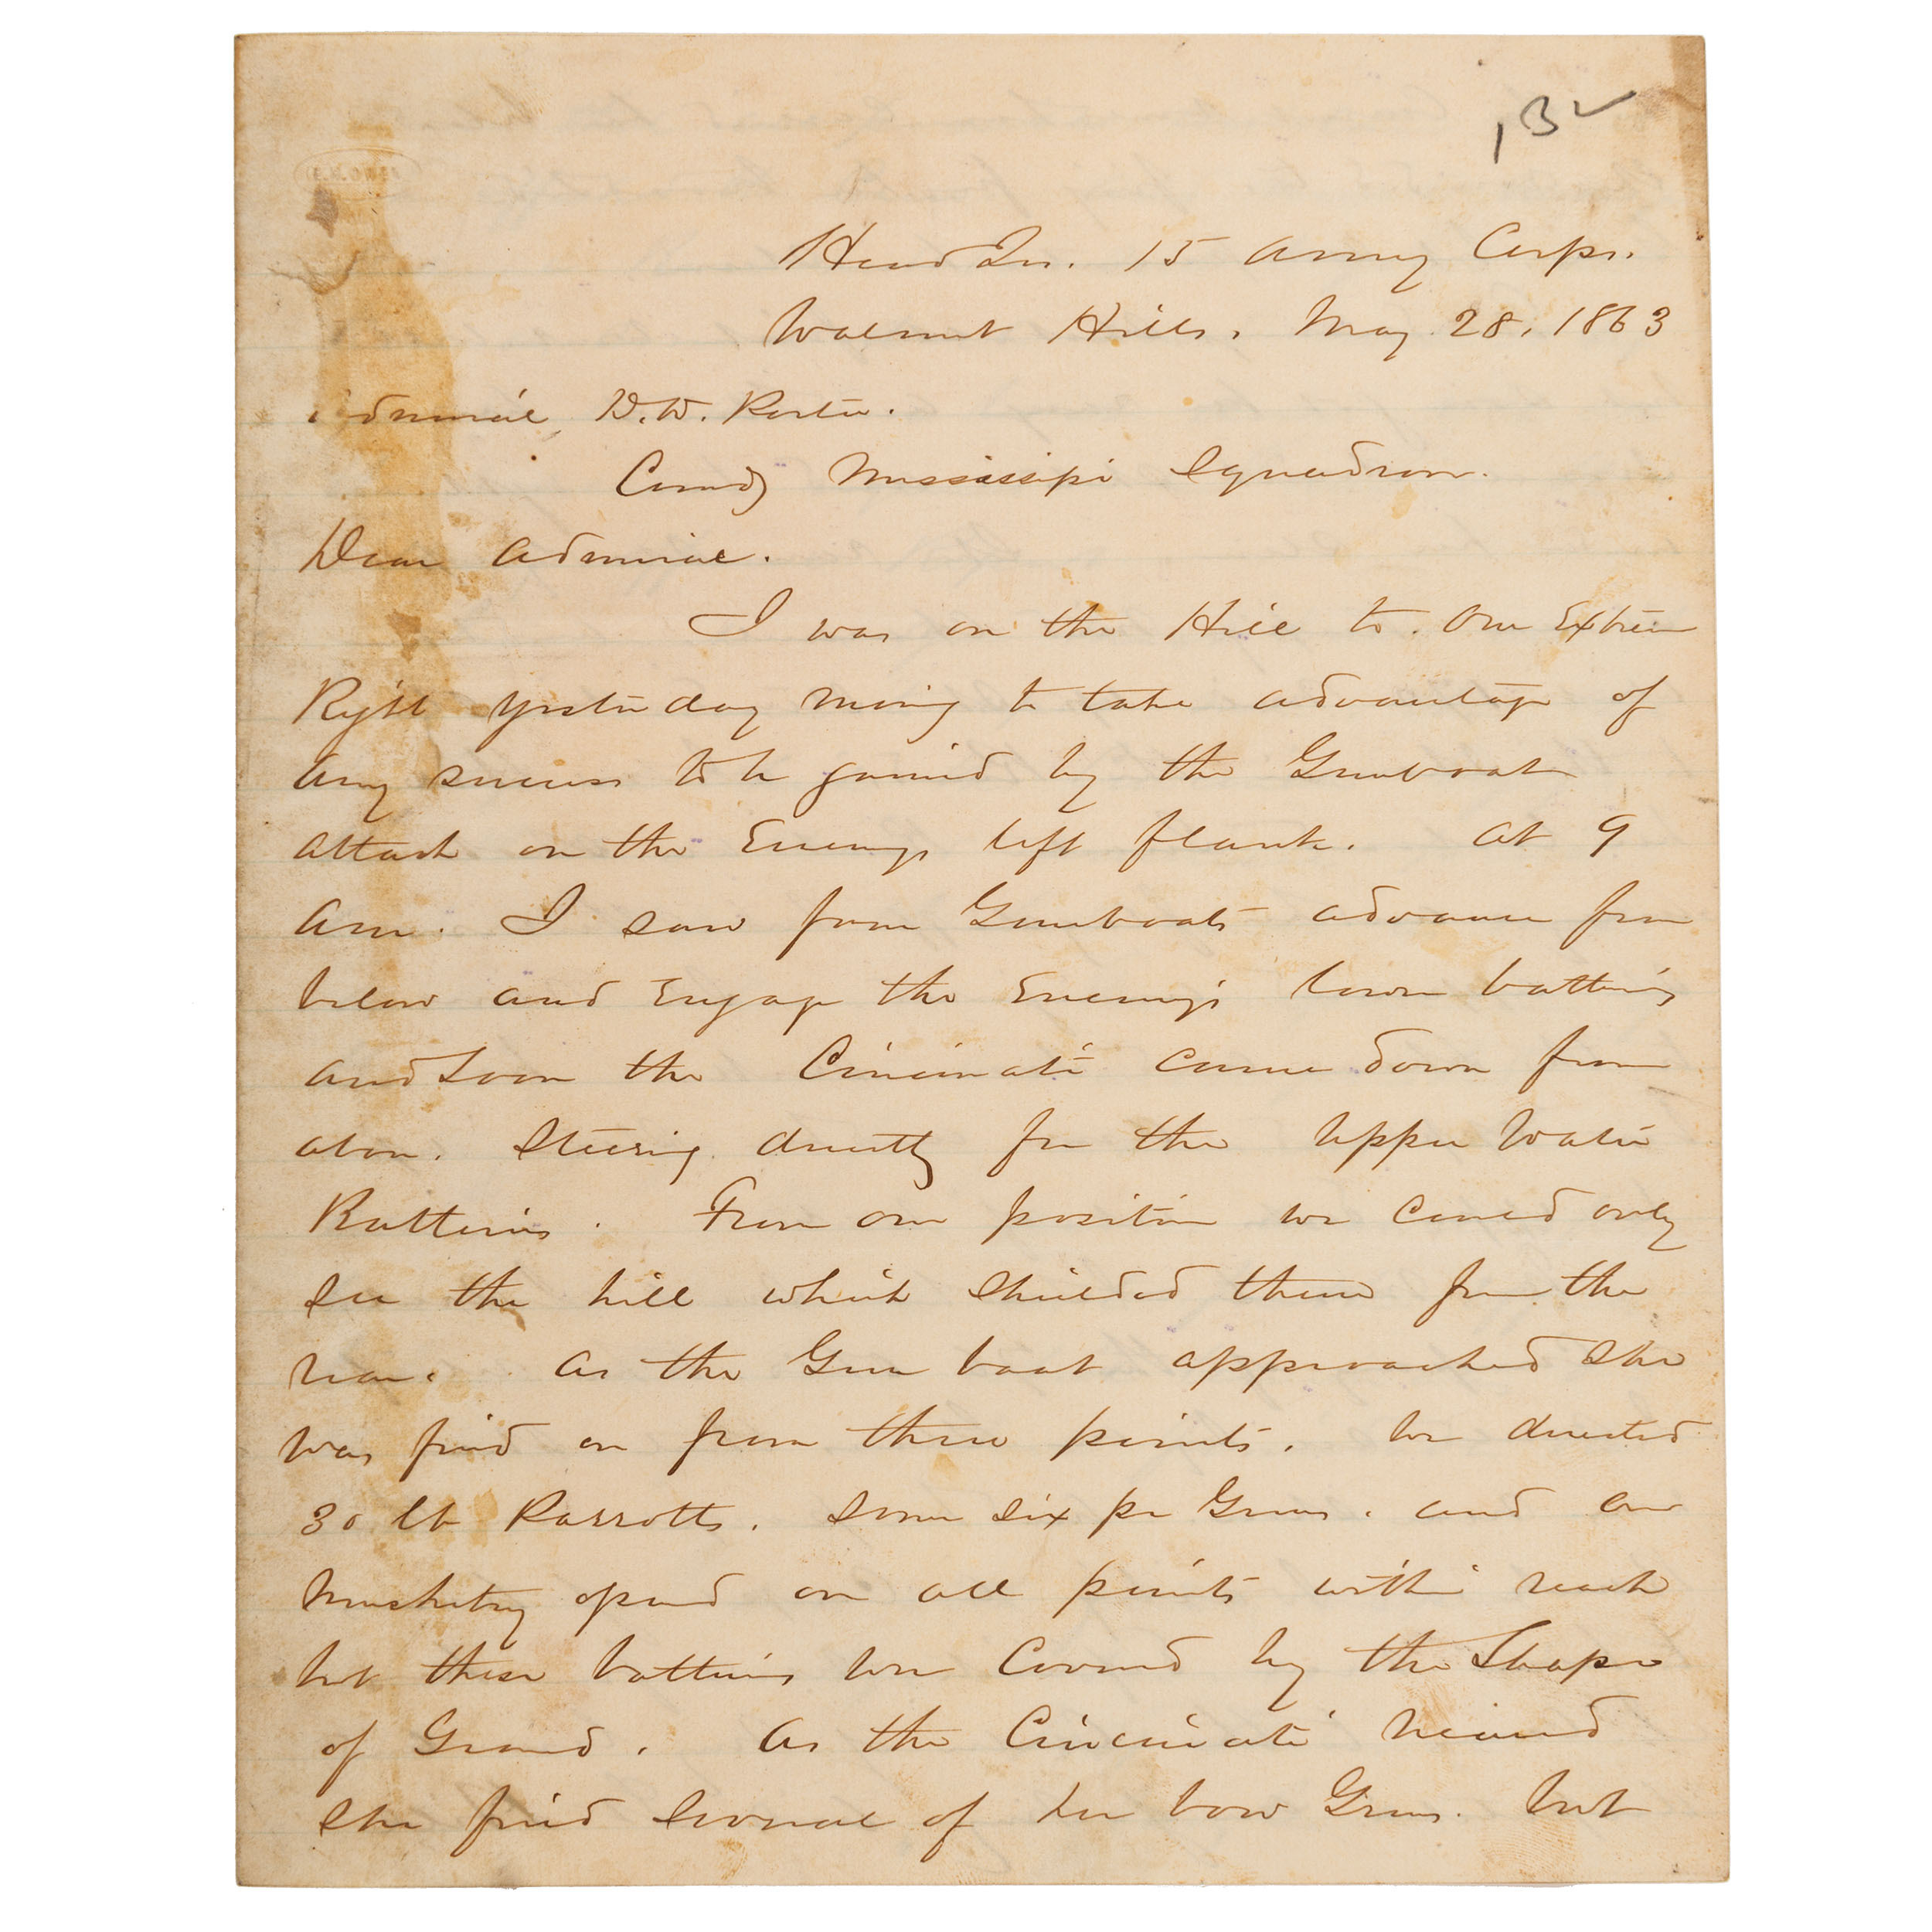 132
E.H. OWEN
Head Qrs. 15 Army Corps.
Walnut Hills, May 28, 1863
Admiral D.D. Porter.
Comdg Mississipi Squadron.
Dear Admiral.
I was on the Hill to our Extreme
Right yesterday morning to take advantage of
any success to be gained by the Gunboat
attack on the Enemys left flank. At 9
am. I saw four Gunboats advance from
below and Engage the Enemy's lower batteries
and soon the Cincinati came down from
above. Steering directly for the Upper Water
Batteries. From our position we could only
see the hill which shielded them from the
rear. As the Gun boat approached she
was fired on from three points. We directed
30 lb Parrotts. Some six pr Guns. and our
Musketry opened on all points within reach
but these batteries were Covered by the Shape
of Ground. As the Cincinati neared
she fired several of her bow Guns. but